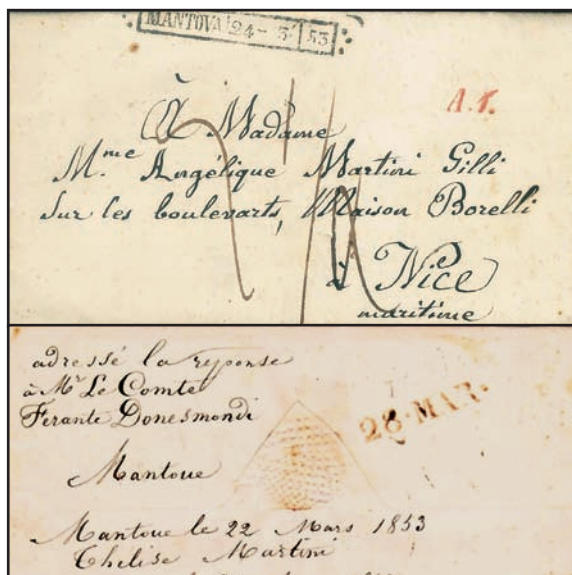 MANTOVA 24-3 53
A.T.
À Madame
Mme Angélique Martini Gilli
Sur les boulevarts, Maison Borelli
à Nice
maritime
adressé la reponse
à Mr Le Comte
Ferante Donesmondi
28·MAR·
Mantoue
Mantoue le 22 Mars 1853
Thelise Martini